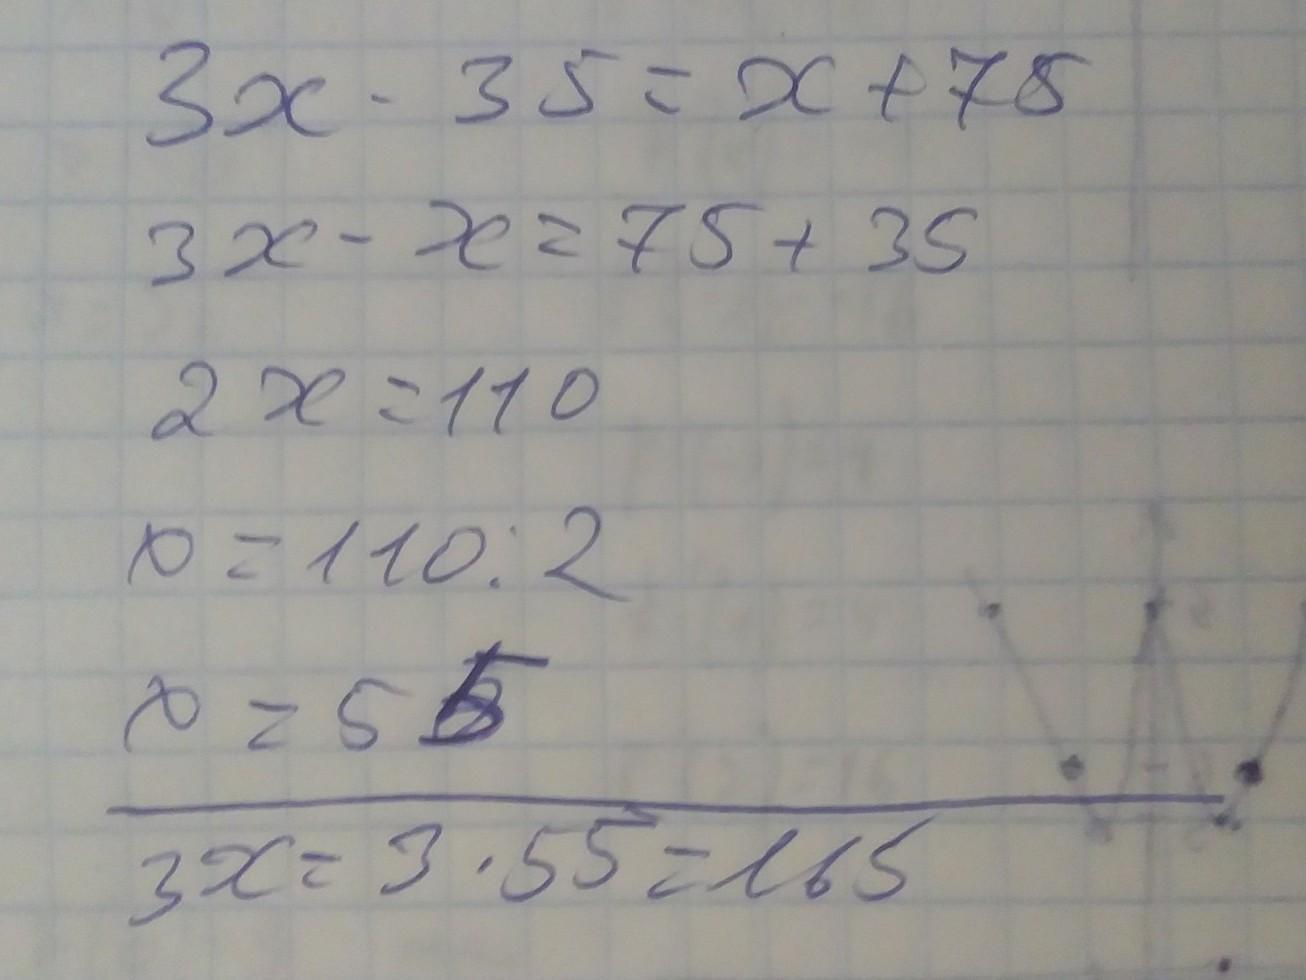 3x - 35 = x + 75
3x - x = 75 + 35
2x = 110
x = 110 : 2
x = 55
3x = 3 · 55 = 165